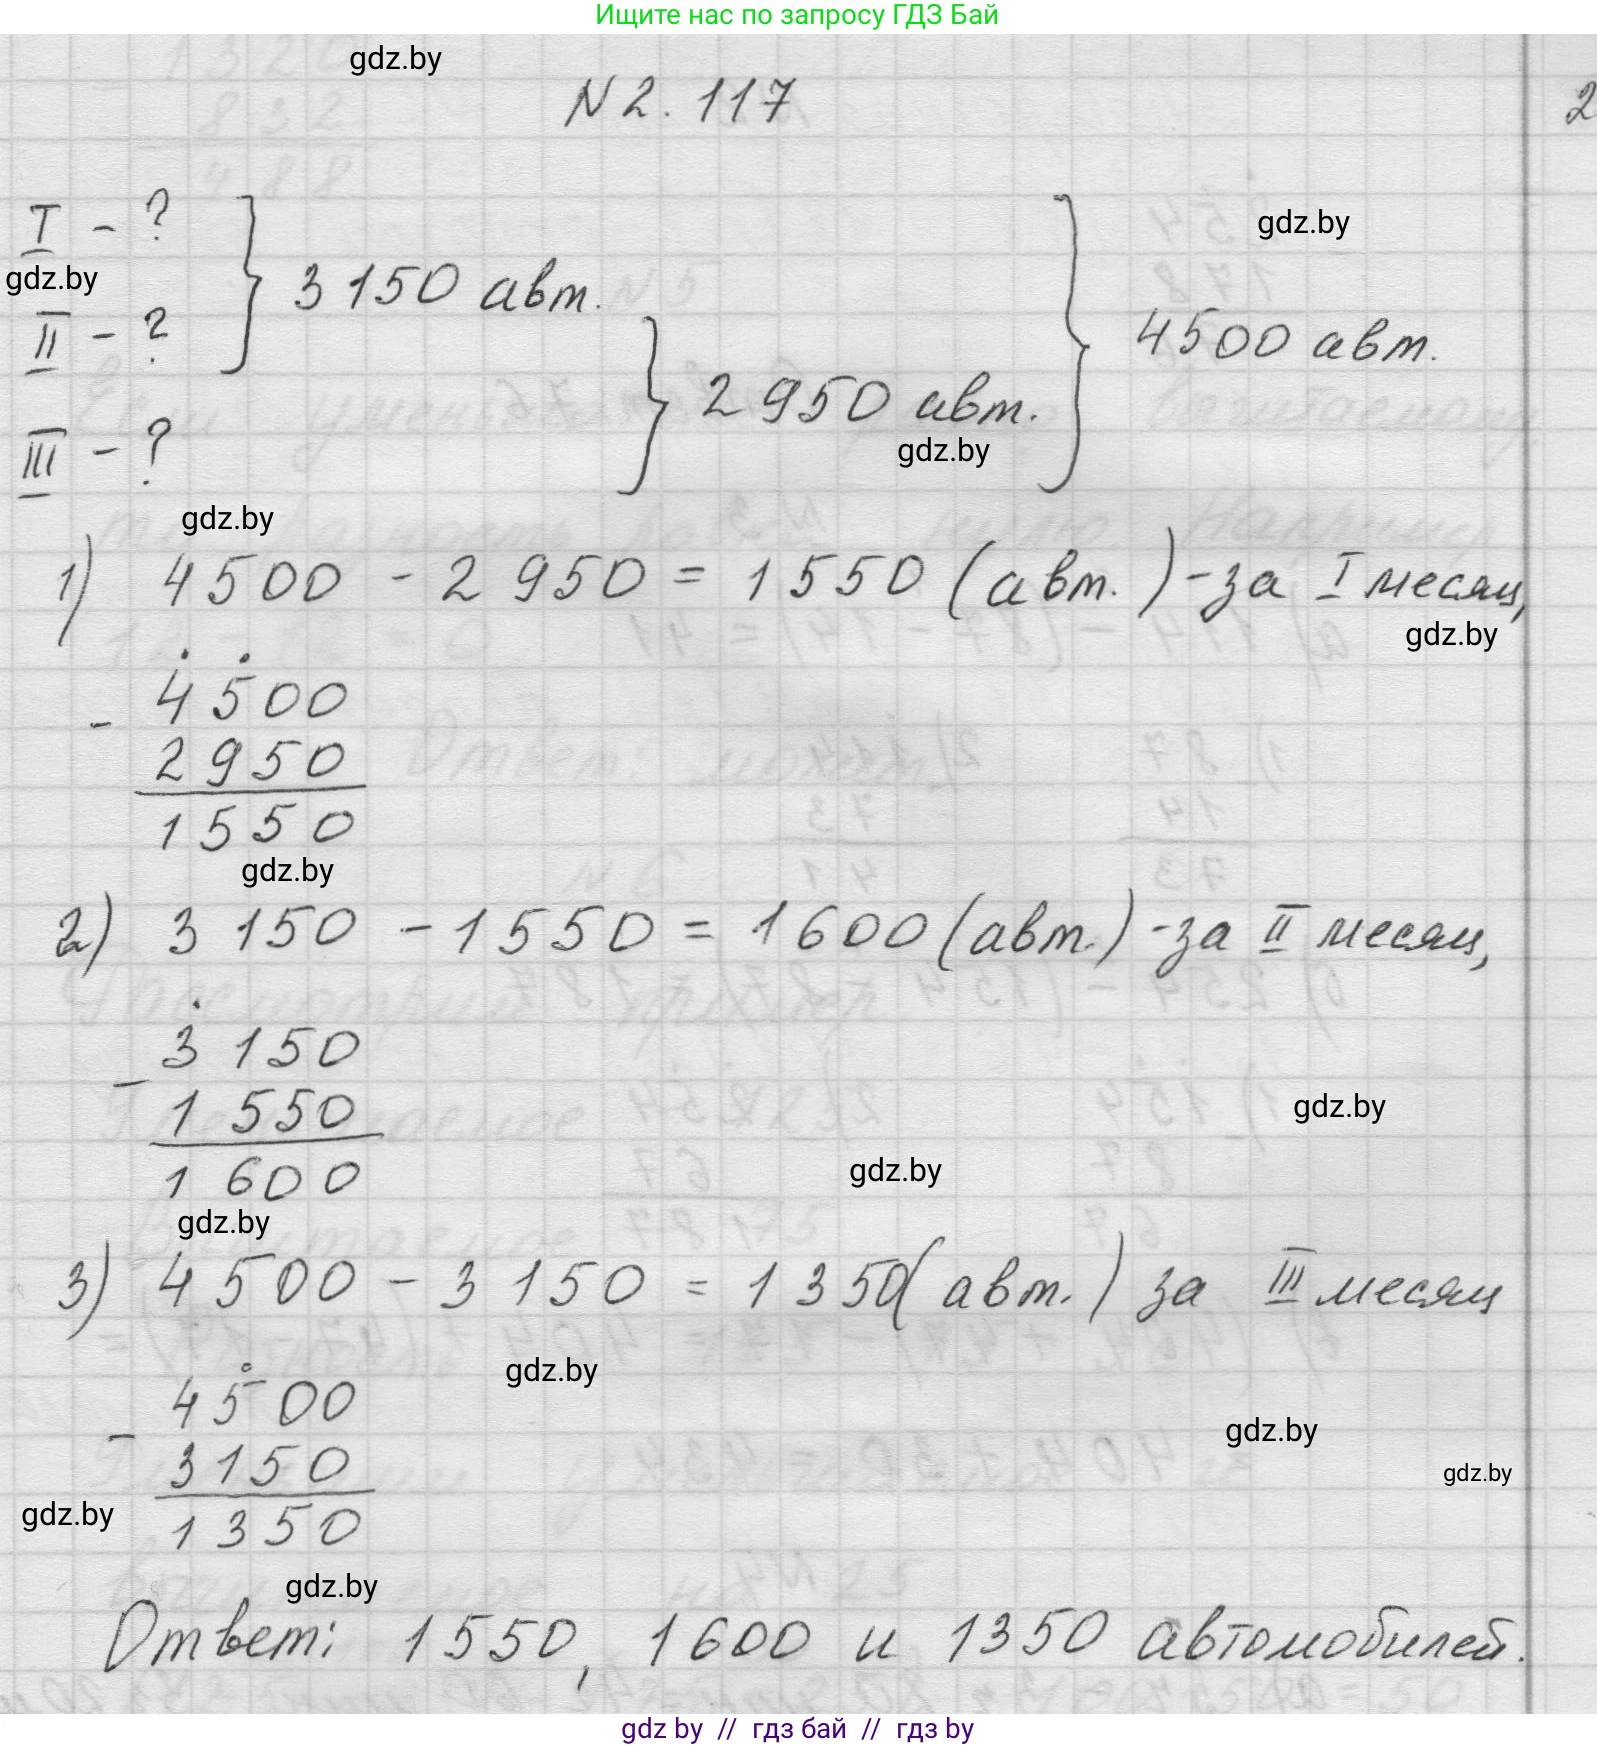 Ищите нас по запросу ГДЗ Бай
gdz.by
N 2. 117
2
I - ?
gdz.by
3150 авт.
gdz.by
II - ?
2950 авт.
4500 авт.
III - ?
gdz.by
gdz.by
1) 4500 - 2950 = 1550 (авт.) - за I месяц,
gdz.by
- 4500
2950
1550
gdz.by
2) 3150 - 1550 = 1600 (авт.) - за II месяц,
- 3150
1550
gdz.by
1600
gdz.by
gdz.by
3) 4500 - 3150 = 1350 (авт.) за III месяц
gdz.by
- 4500
gdz.by
3150
gdz.by
gdz.by
1350
gdz.by
Ответ: 1550, 1600 и 1350 автомобилей.
gdz by // гдз бай // гдз by